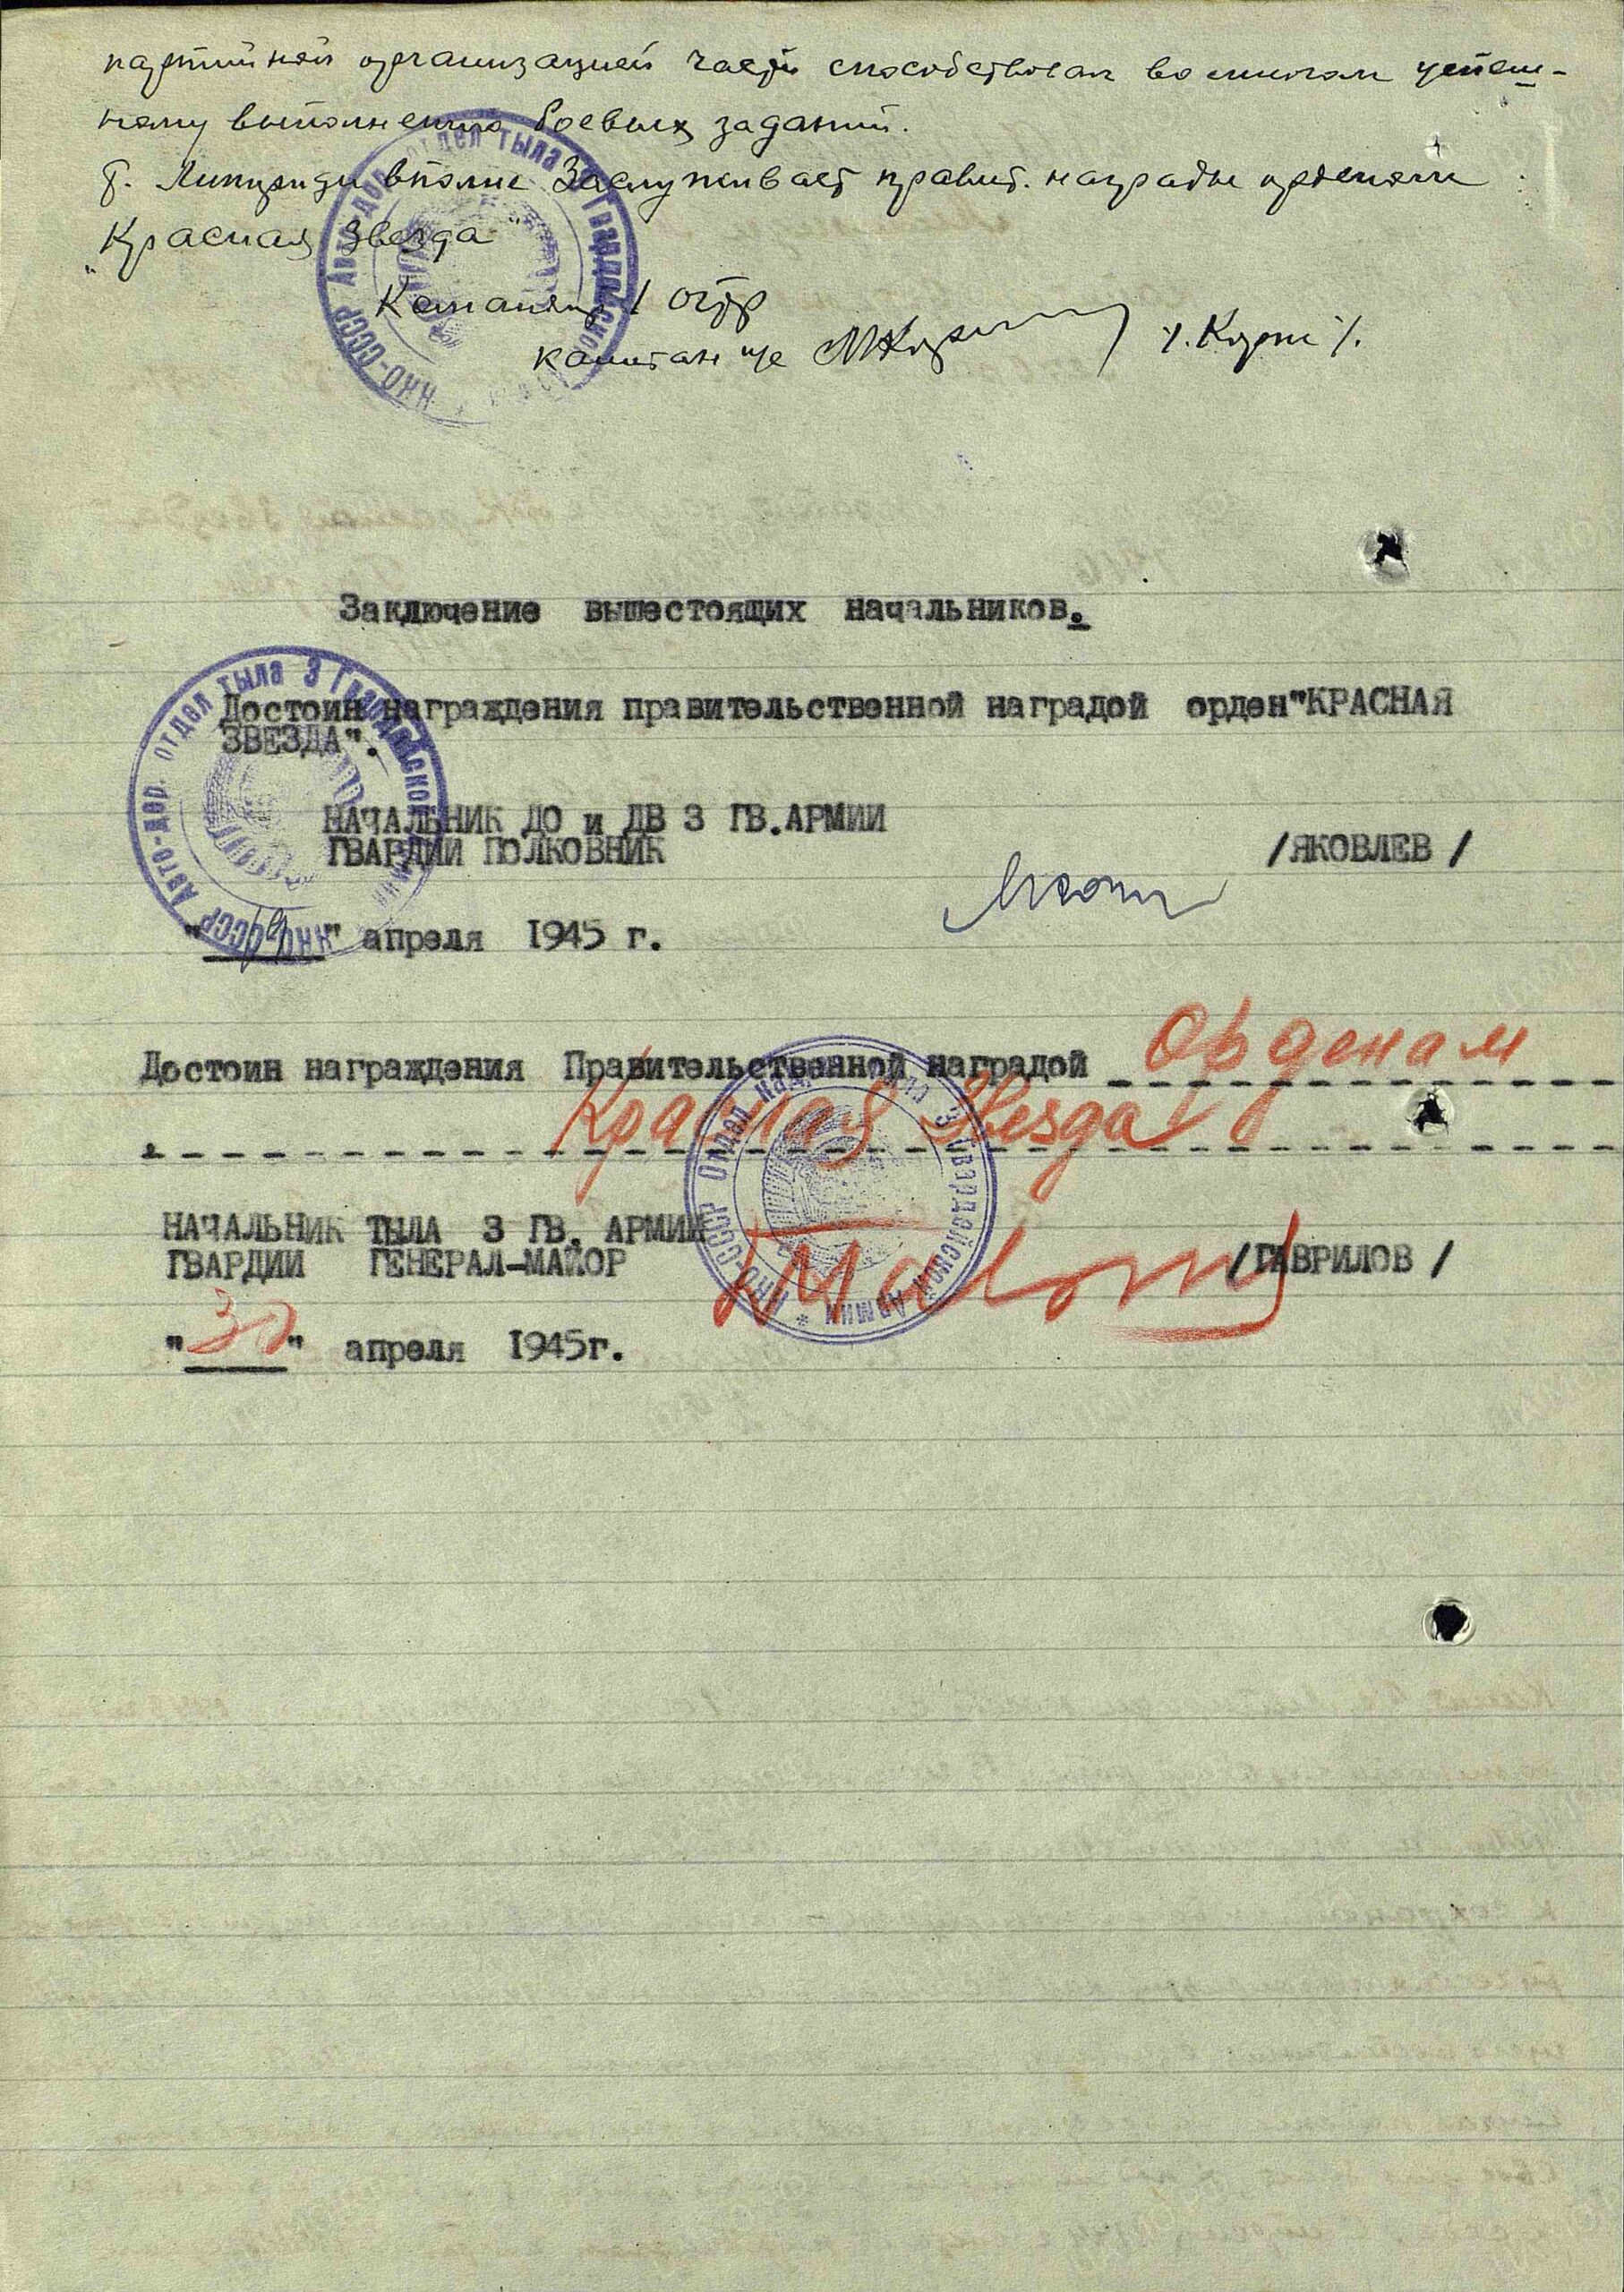 партийной организацией части способствовал во многом успеш-
ному выполнению боевых заданий.
т. Липириди вполне заслуживает правит. награды орденом
"Красная Звезда"
Командир 1 отдр
капитан
Заключение вышестоящих начальников.
Достоин награждения правительственной наградой орден"КРАСНАЯ
ЗВЕЗДА".
НАЧАЛЬНИК ДО и ДВ 3 ГВ.АРМИИ
ГВАРДИИ ПОЛКОВНИК /ЯКОВЛЕВ /
" " апреля 1945 г.
Достоин награждения Правительственной наградой Орденам
Красная Звезда
НАЧАЛЬНИК ТЫЛА 3 ГВ. АРМИИ
ГВАРДИИ ГЕНЕРАЛ-МАЙОР /ГАВРИЛОВ /
"30" апреля 1945г.
НКО-СССР Авто-дор. отдел тыла 3 Гвардейской Армии
НКО-СССР Авто-дор. отдел тыла 3 Гвардейской Армии
НКО-СССР Отдел 3 Гвардейской Армии